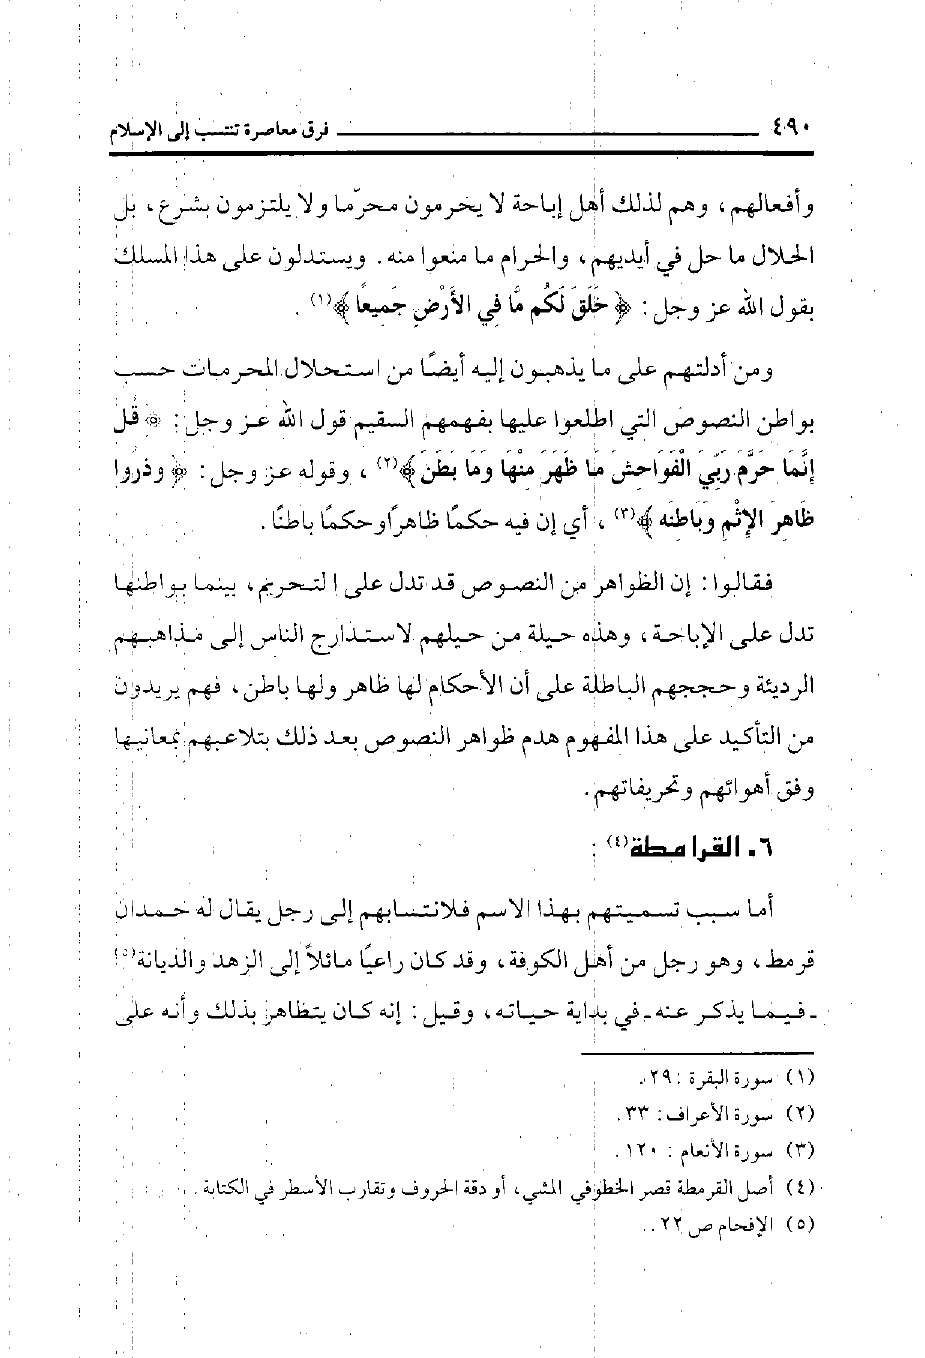 ٤٩٠ فرق معاصرة تنتسب إلى الإسلام
وأفعالهم، وهم لذلك أهل إباحة لا يحرمون محرّما ولا يلتزمون بشرع، بل
الحلال ما حل في أيديهم، والحرام ما منعوا منه. ويستدلون على هذا المسلك
بقول الله عز وجل: ﴿خَلَقَ لَكُم مَّا فِي الأَرْضِ جَمِيعًا﴾(١).
ومن أدلتهم على ما يذهبون إليه أيضًا من استحلال المحرمات حسب
بواطن النصوص التي اطلعوا عليها بفهمهم السقيم قول الله عز وجل: ﴿قُل
إِنَّمَا حَرَّمَ رَبِّيَ الْفَوَاحِشَ مَا ظَهَرَ مِنْهَا وَمَا بَطَنَ﴾(٢)، وقوله عز وجل: ﴿وذَرُوا
ظَاهِرَ الإِثْمِ وَبَاطِنَه﴾(٣)، أي إن فيه حكمًا ظاهرًا وحكمًا باطنًا.
فقالوا: إن الظواهر من النصوص قد تدل على التحريم، بينما بواطنها
تدل على الإباحة، وهذه حيلة من حيلهم لاستدارج الناس إلى مذاهبهم
الرديئة وحججهم الباطلة على أن الأحكام لها ظاهر ولها باطن، فهم يريدون
من التأكيد على هذا المفهوم هدم ظواهر النصوص بعد ذلك بتلاعبهم بمعانيها
وفق أهوائهم وتحريفاتهم.
٦. القرامطة(٤):
أما سبب تسميتهم بهذا الاسم فلانتسابهم إلى رجل يقال له حمدان
قرمط، وهو رجل من أهل الكوفة، وقد كان راعيًا مائلاً إلى الزهد والديانة(٥)
ـ فيما يذكر عنه ـ في بداية حياته، وقيل: إنه كان يتظاهر بذلك وأنه على
(١) سورة البقرة: ٢٩.
(٢) سورة الأعراف: ٣٣.
(٣) سورة الأنعام: ١٢٠.
(٤) أصل القرمطة قصر الخطو في المشي، أو دقة الحروف وتقارب الأسطر في الكتابة.
(٥) الإفحام ص ٢٢.